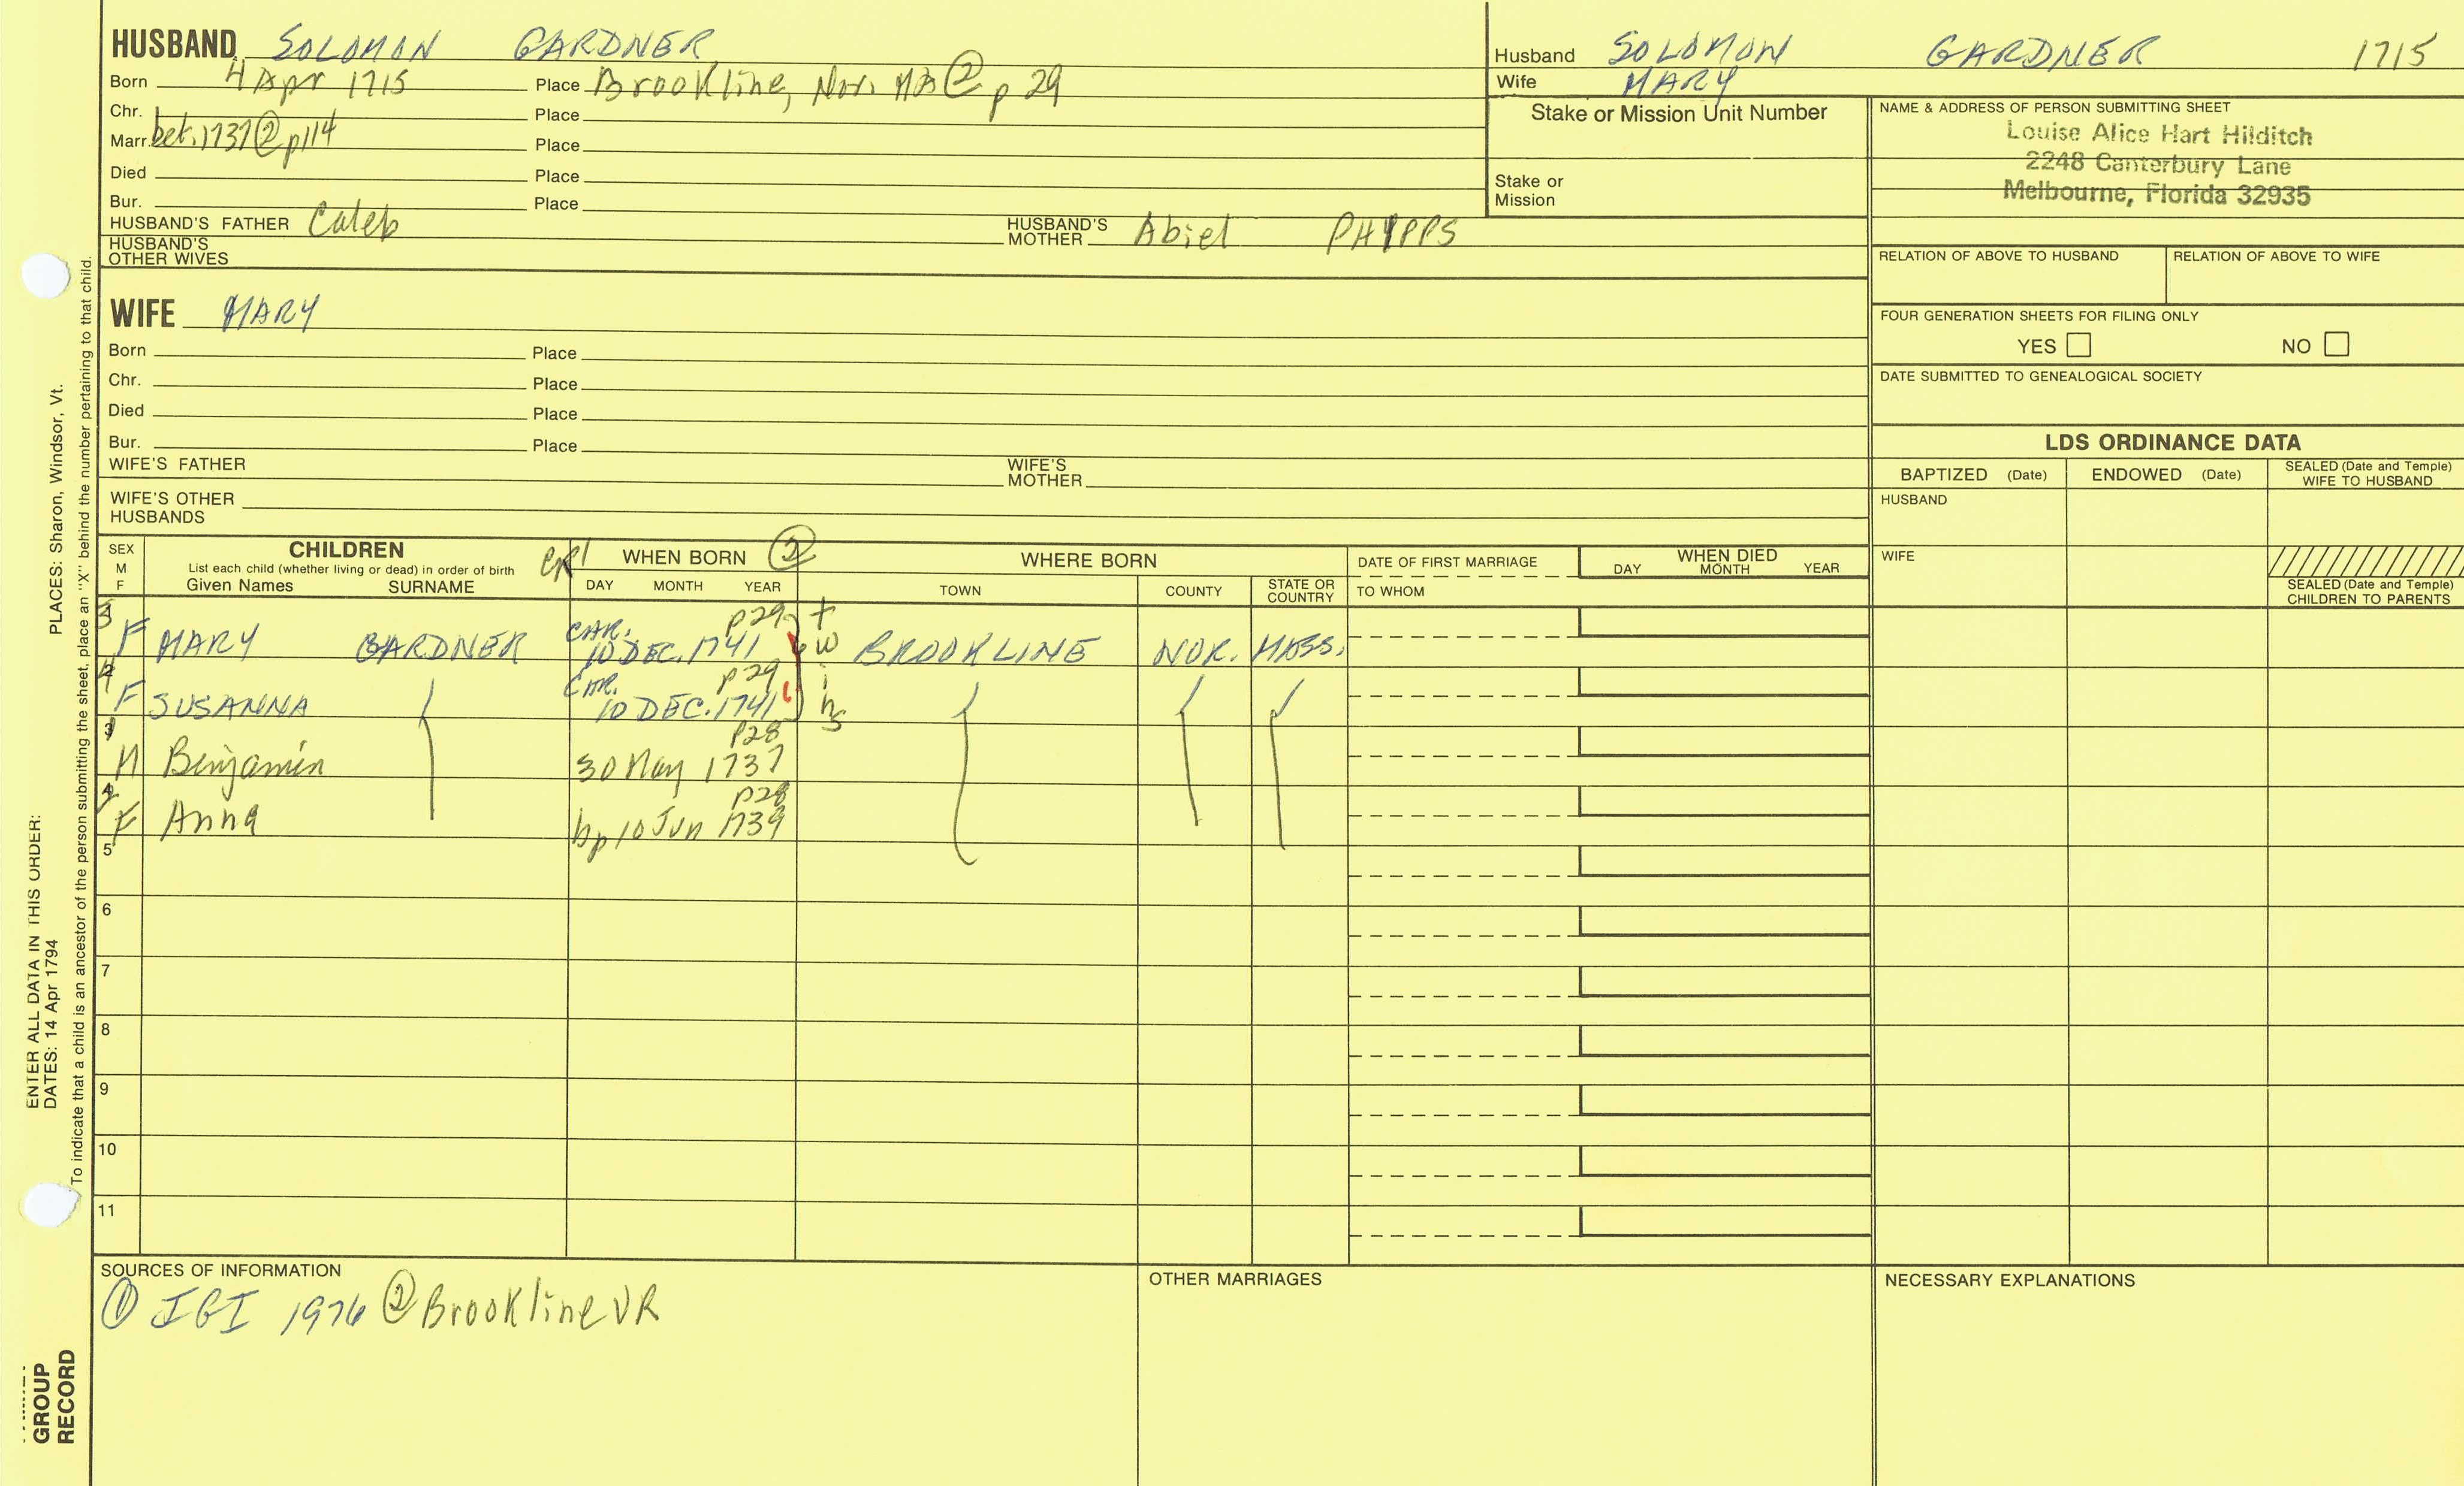 HUSBAND SOLOMON GARDNER
Born 4 Apr 1715 Place Brookline, Nor. MA ② p 29
Chr. Place
Marr. bet. 1737 ② p114 Place
Died Place
Bur. Place
HUSBAND'S FATHER Caleb HUSBAND'S MOTHER Abiel PHIPPS
HUSBAND'S OTHER WIVES
Husband SOLOMON GARDNER 1715
Wife MARY
Stake or Mission Unit Number
Stake or Mission
NAME & ADDRESS OF PERSON SUBMITTING SHEET
Louise Alice Hart Hilditch
2248 Canterbury Lane
Melbourne, Florida 32935
RELATION OF ABOVE TO HUSBAND RELATION OF ABOVE TO WIFE
FOUR GENERATION SHEETS FOR FILING ONLY
YES NO
DATE SUBMITTED TO GENEALOGICAL SOCIETY
WIFE MARY
Born Place
Chr. Place
Died Place
Bur. Place
WIFE'S FATHER WIFE'S MOTHER
WIFE'S OTHER HUSBANDS
LDS ORDINANCE DATA
BAPTIZED (Date) ENDOWED (Date) SEALED (Date and Temple) WIFE TO HUSBAND
HUSBAND
WIFE
SEALED (Date and Temple) CHILDREN TO PARENTS
SEX M F
CHILDREN
List each child (whether living or dead) in order of birth
Given Names SURNAME
WHEN BORN ②
DAY MONTH YEAR
WHERE BORN
TOWN COUNTY STATE OR COUNTRY
DATE OF FIRST MARRIAGE
TO WHOM
WHEN DIED
DAY MONTH YEAR
3 F MARY GARDNER CHR. 10 DEC. 1741 p29 BROOKLINE NOR. MASS.
4 F SUSANNA CHR. 10 DEC. 1741 p29
twins
M Benjamin 30 May 1737 p28
F Anna bp 10 Jun 1739 p28
5
6
7
8
9
10
11
SOURCES OF INFORMATION
① IGI 1976 ② Brookline VR
OTHER MARRIAGES
NECESSARY EXPLANATIONS
PLACES: Sharon, Windsor, Vt.
ENTER ALL DATA IN THIS ORDER:
DATES: 14 Apr 1794
To indicate that a child is an ancestor of the person submitting the sheet, place an "X" behind the number pertaining to that child.
GROUP
RECORD